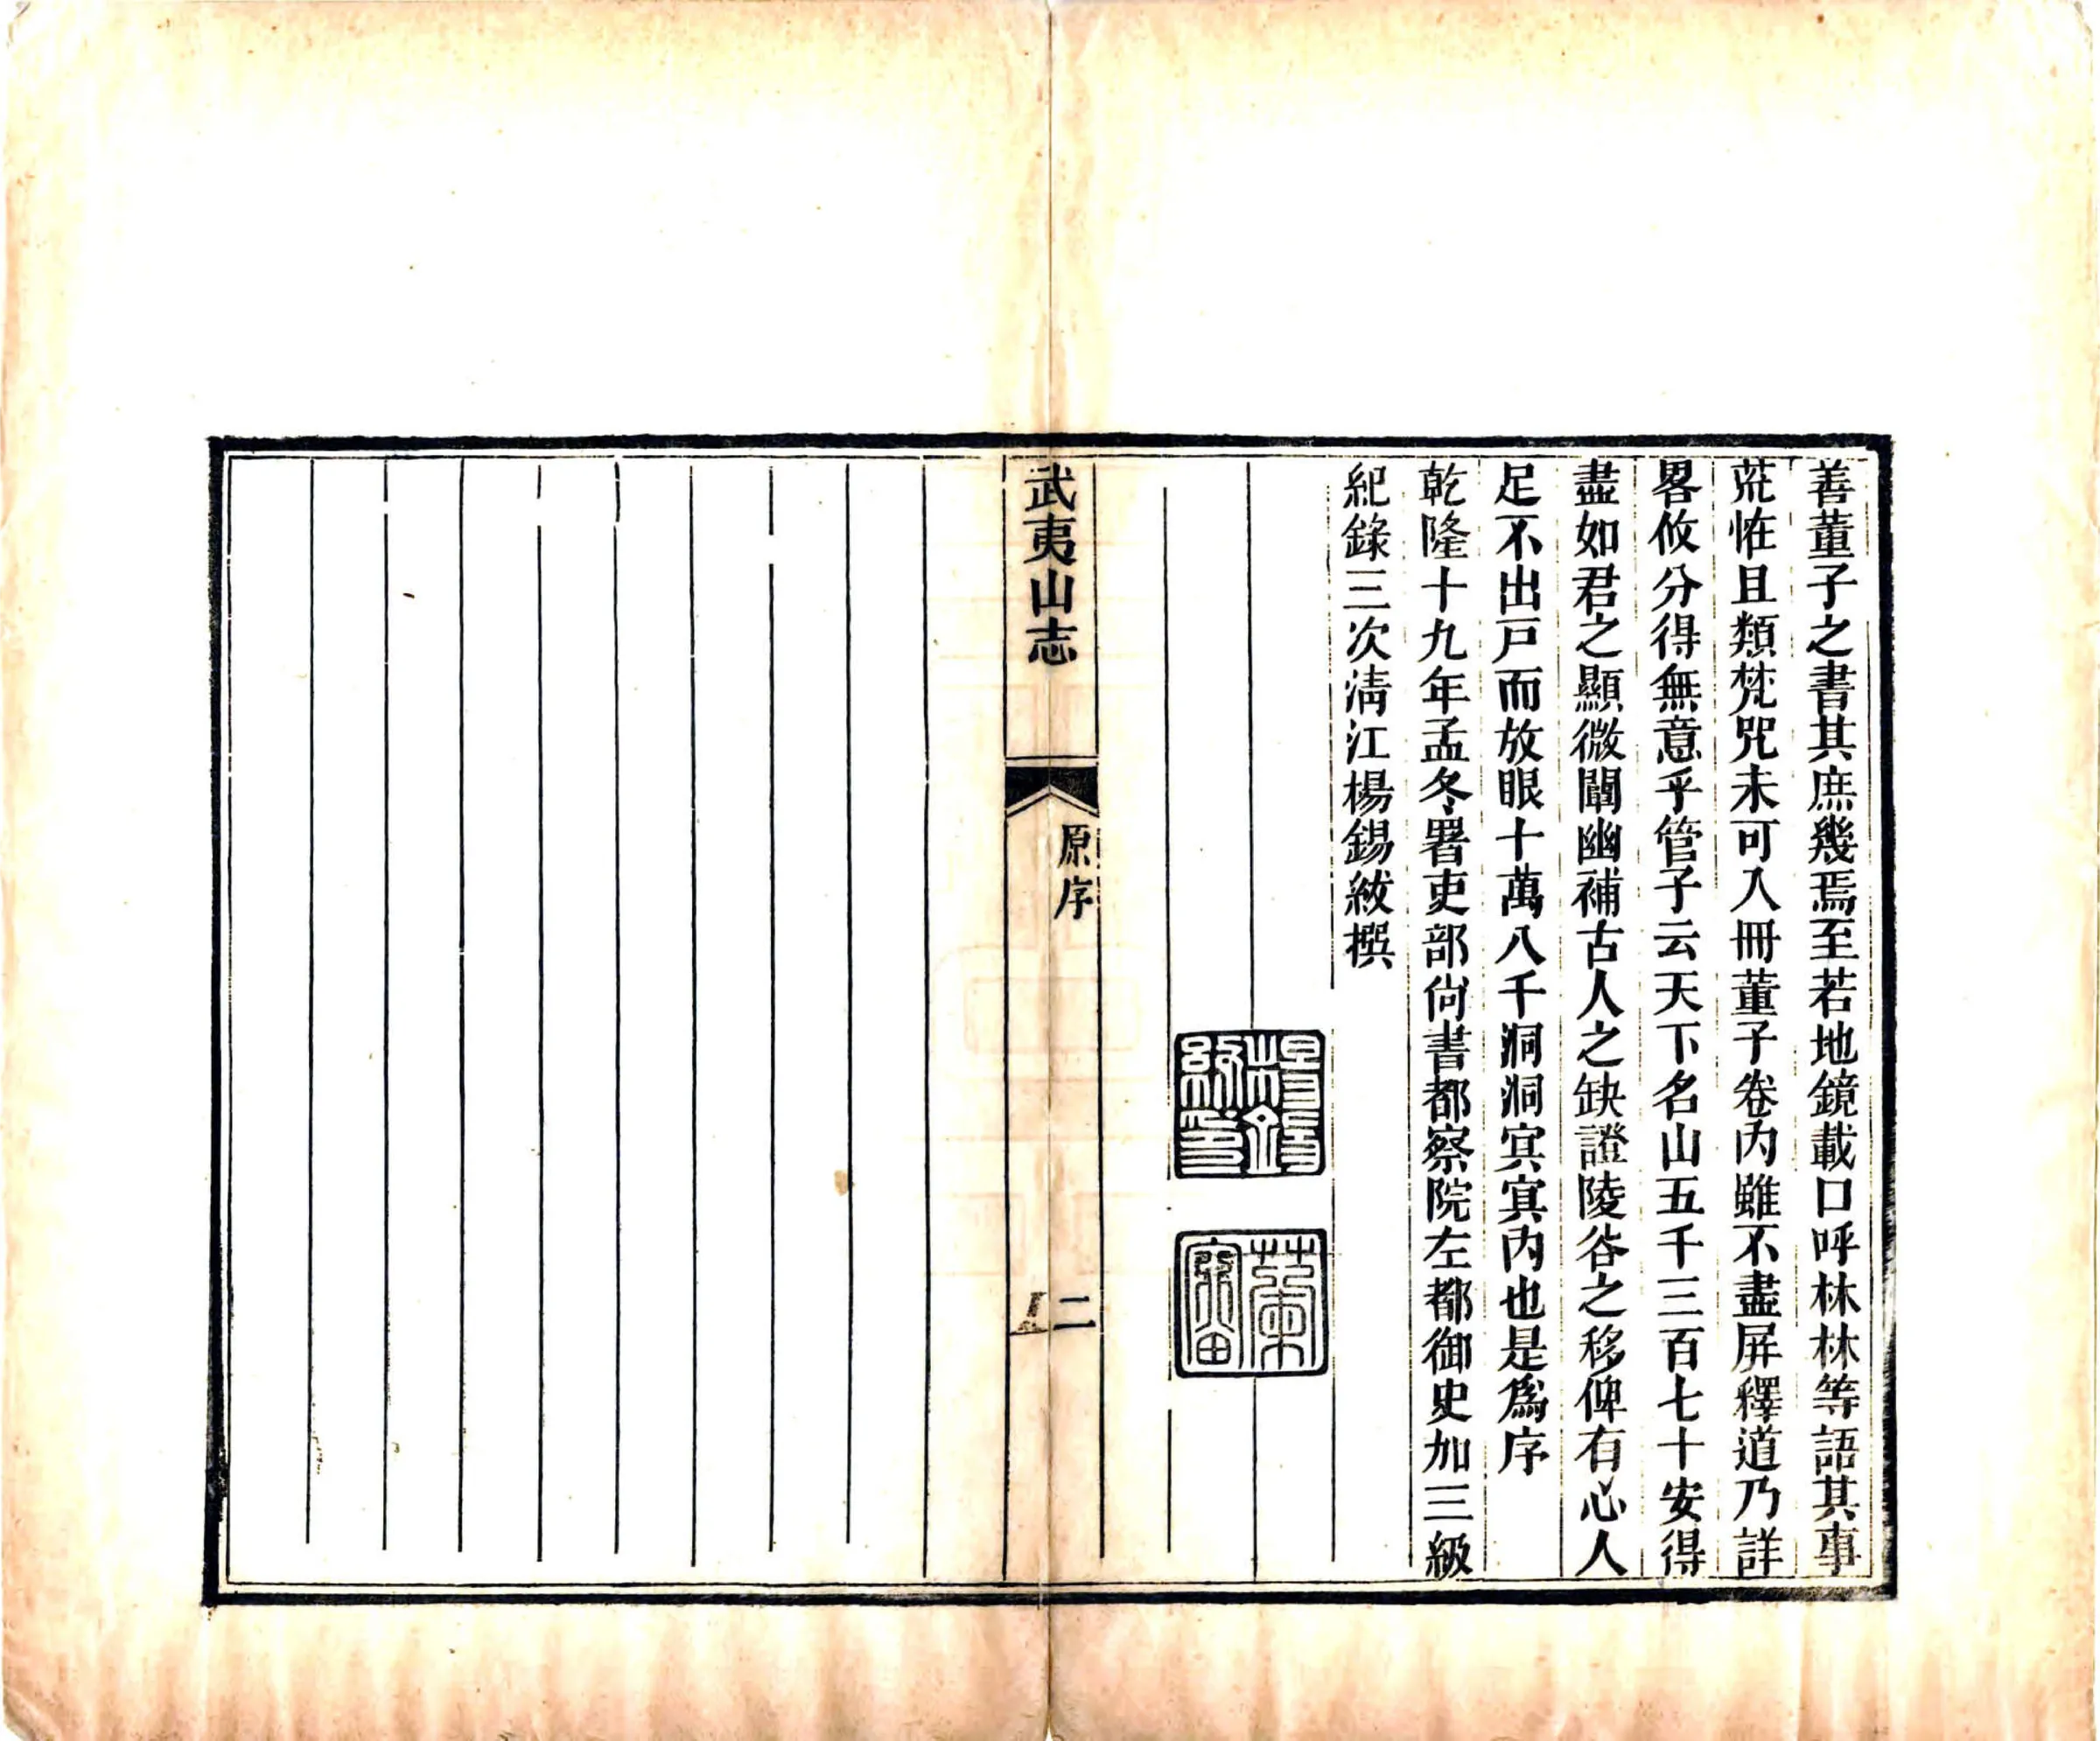 善董子之書其庶幾焉至若地鏡載口呼林林等語其事
荒恠且類梵咒未可入冊董子卷內雖不盡屏釋道乃詳
畧攸分得無意乎管子云天下名山五千三百七十安得
盡如君之顯微闡幽補古人之缺證陵谷之移俾有心人
足不出戸而放眼十萬八千洞洞㝠㝠內也是爲序
乾隆十九年孟冬署吏部尙書都察院左都御史加三級
紀錄三次淸江楊錫紱撰
楊錫紱印
武夷山志
原序
二